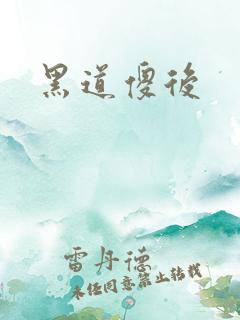 黑道傻後
雷丹德
未经同意禁止转载